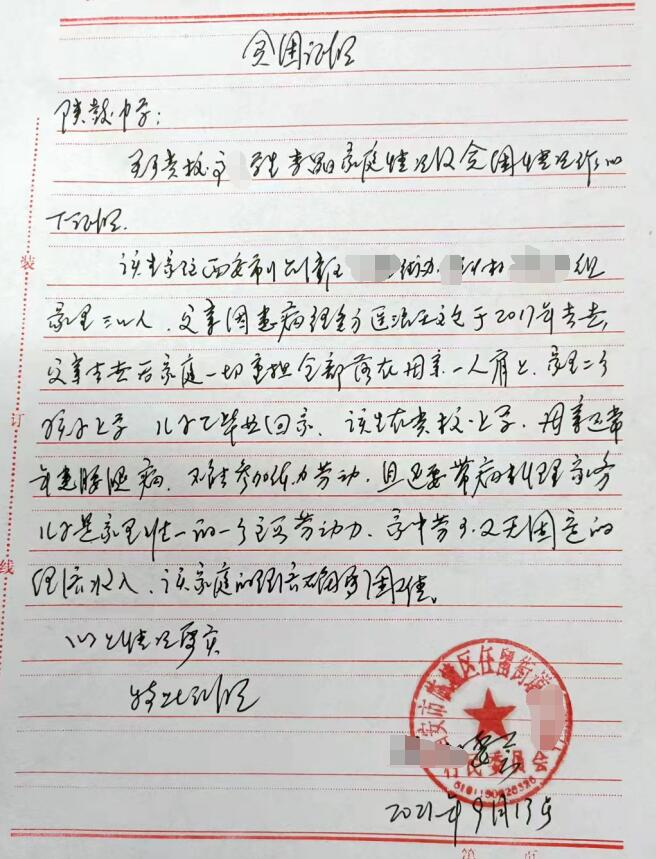 贫困证明
陕鼓中学:
至于贵校 学生 家庭情况及贫困情况作如
下证明.
该生家住西安市临潼区 街办 村 组
家里三口人,父亲因患病经多方医治无效于2017年去世,
父亲去世后家庭一切重担全部落在母亲一人肩上,家里二个
孩子上学 儿子已毕业回家.该生在贵校上学.母亲还常
年患腰腿病.不能参加体力劳动,且还要带病料理家务
儿子是家里唯一的一个主要劳动力.家中劳力少又无固定的
经济收入,该家庭的经济确实困难。
以上情况属实
特此证明
2021年9月13号
装
订
线
安市临潼区任留街道
村民委员会
第 页